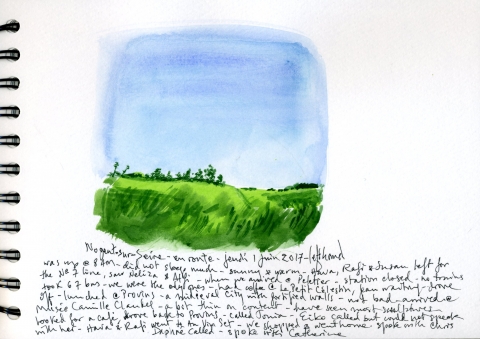 Nogent-sur-Seine - en route - jeudi 1 juin 2017 -
was up @ 8 - did not sleep much - sunny & warm - Rafi & Susan left for
the No 7 line, saw & when we arrived @ Pelletier - station closed - no trains
took 67 bus - we were the only ones - had coffee @ Le Petit Celestin, Jean waiting - drove
off - lunched @ Provins - a medieval city with fortified walls - not bad - arrived @
Musée Camille Claudel - a bit thin on content - have seen most sculptures
looked for a café drove back to Provins - called - called but could not speak
with her - & Rafi went to - we shopped & went home - spoke with Chris
called - spoke Catherine